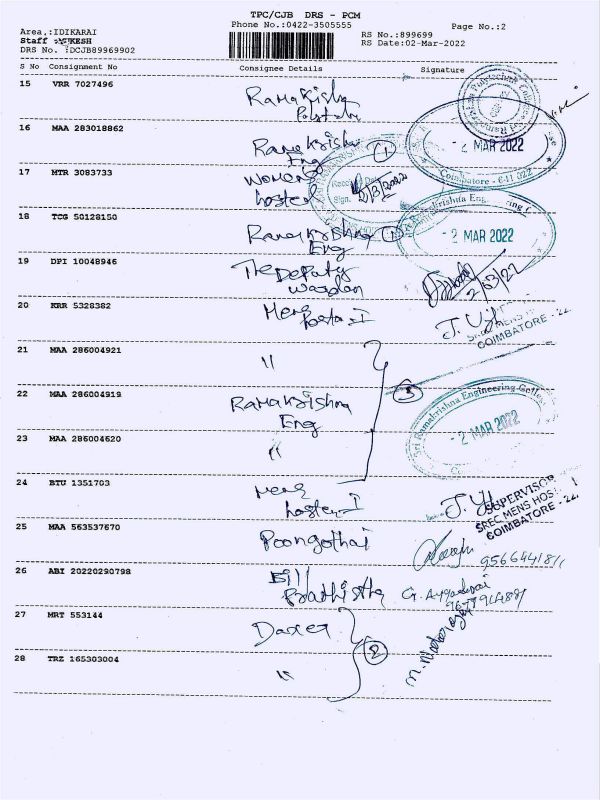 TPC/CJB DRS - PCM
Phone No.:0422-3505555
Page No.:2
Area.:IDIKARAI
RS No.:899699
Staff
RS Date:02-Mar-2022
DRS No. :DCJB89969902
S No Consignment No Consignee Details Signature
15 VRR 7027496 Ramakrishna
16 MAA 283018862 Ramakrishna Eng 1
- 2 MAR 2022
Coimbatore - 641 022
17 MTR 3083733 Womens hostel
Sign. 2/3/2022
18 TCG 50128150 Ramakrishna Eng 1
- 2 MAR 2022
19 DPI 10048946 The Deputy Warden
2/03/22
20 KRR 5328382 Mens hostel I
COIMBATORE - 22.
21 MAA 286004921 "
22 MAA 286004919 Ramakrishna Eng 3
Sri Ramakrishna Engineering College
- 2 MAR 2022
23 MAA 286004620 "
24 BTU 1351703 Mens hostel I
SUPERVISOR
SREC MENS HOSTEL
COIMBATORE - 22.
25 MAA 563537670 Poongothai
26 ABI 20220290798 Bill Prathistha
27 MRT 553144
2
28 TRZ 165303004 "